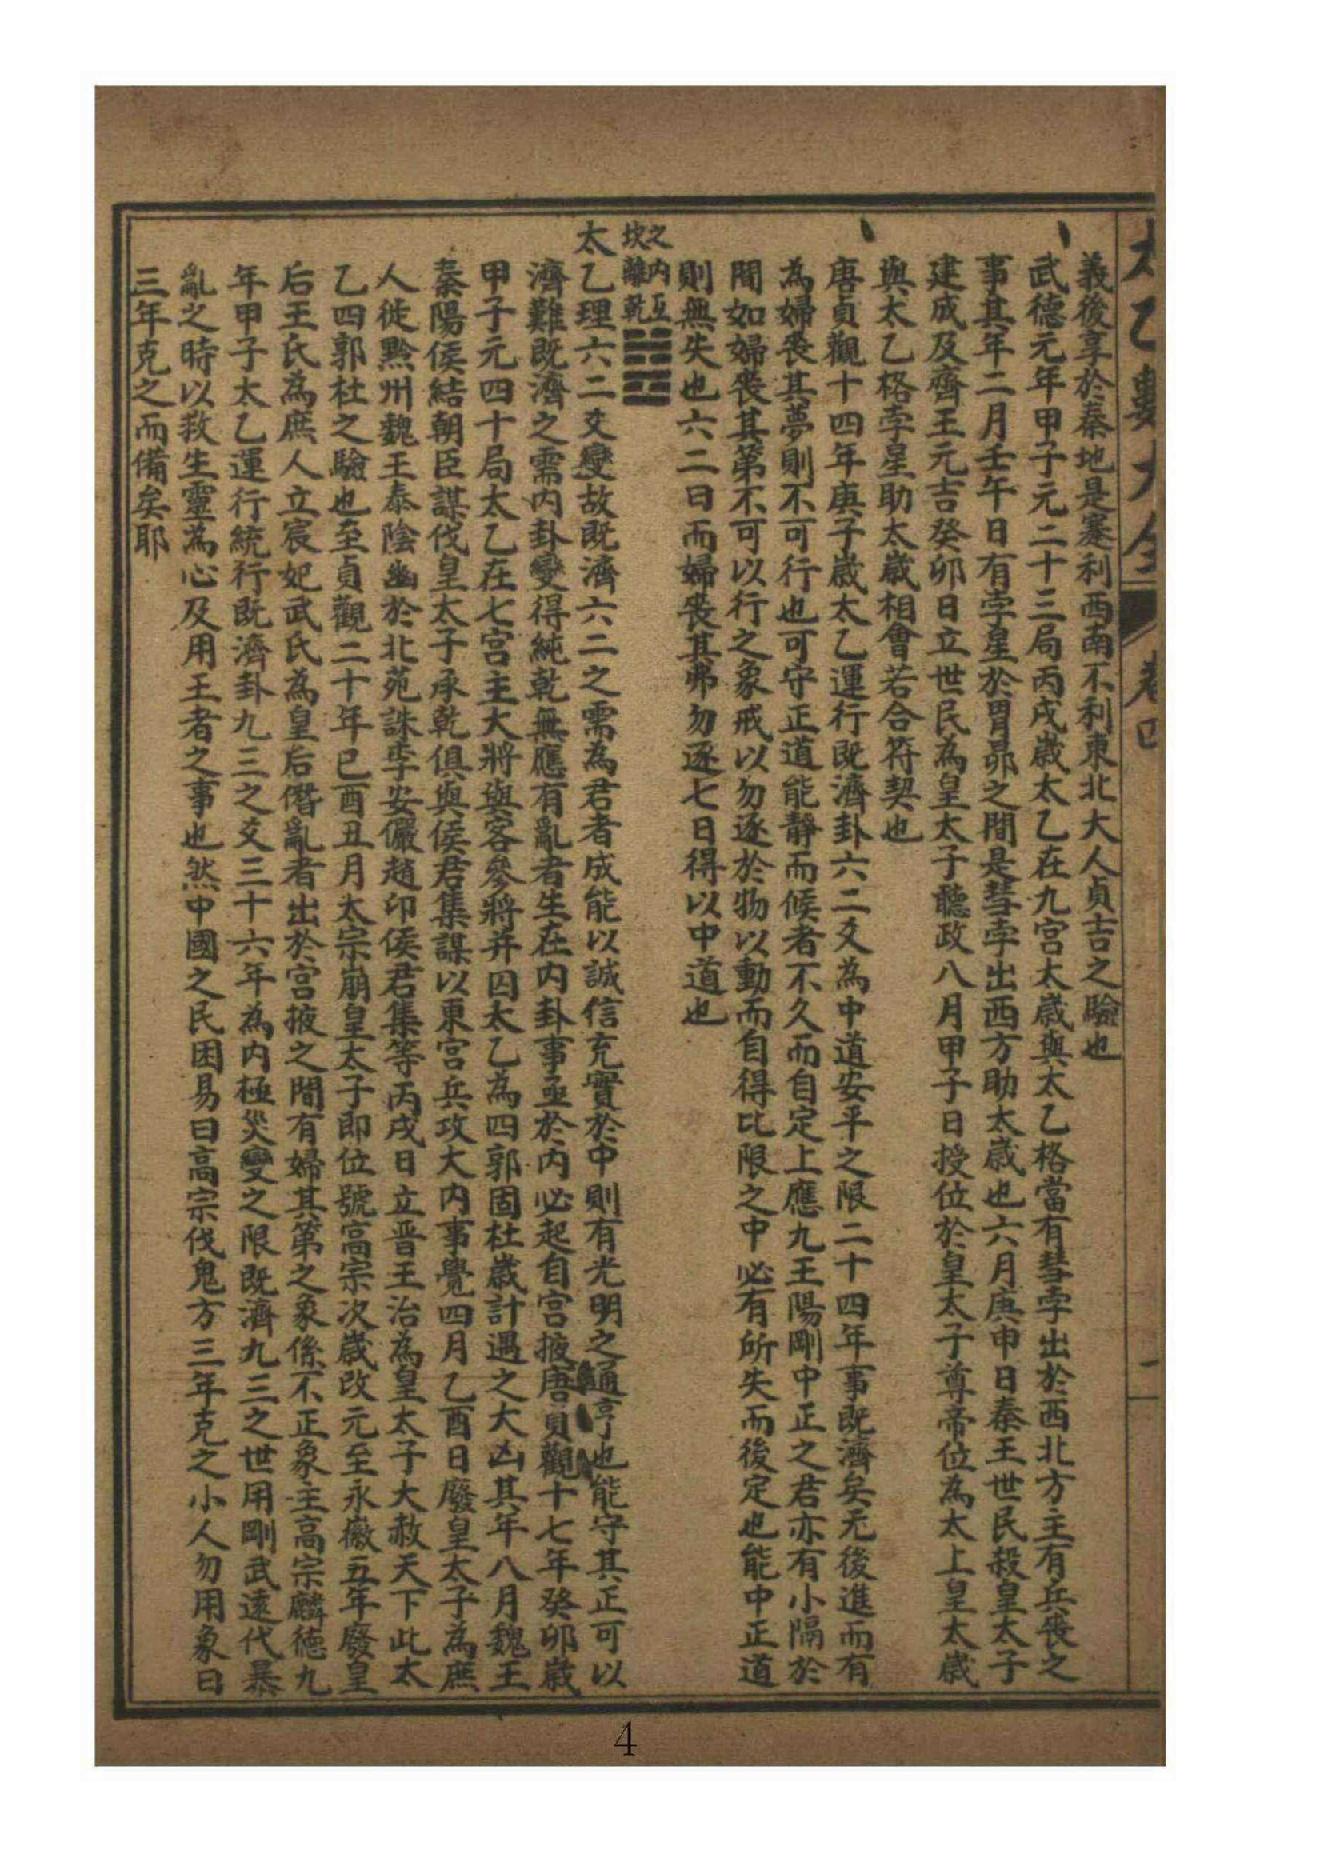 太乙數大全 卷四 一
義後享於秦地是蹇利西南不利東北大人貞吉之驗也
武德元年甲子元二十三局丙戌歲太乙在九宮太歲與太乙格當有彗孛出於西北方主有兵喪之
事其年二月壬午日有孛星於胃昴之間是彗孛出西方助太歲也六月庚申日秦王世民殺皇太子
建成及齊王元吉癸卯日立世民為皇太子聽政八月甲子日授位於皇太子尊帝位為太上皇太歲
與太乙格孛星助太歲相會若合符契也
唐貞觀十四年庚子歲太乙運行既濟卦六二爻為中道安平之限二十四年事既濟矣无後進而有
為婦喪其夢則不可行也可守正道能靜而候者不久而自定上應九王陽剛中正之君亦有小隔於
間如婦喪其第不可以行之象戒以勿逐於物以動而自得比限之中必有所失而後定也能中正道
則無失也六二曰而婦喪其弗勿逐七日得以中道也
之內互
坎離乾
太乙理六二爻變故既濟六二之需為君者成能以誠信充實於中則有光明之通亨也能守其正可以
濟難既濟之需內卦變得純乾無應有亂者生在內卦事亟於內必起自宮掖唐貞觀十七年癸卯歲
甲子元四十局太乙在七宮主大將與客參將并囚太乙為四郭固杜歲計遇之大凶其年八月魏王
秦陽侯結朝臣謀伐皇太子承乾俱與侯君集謀以東宮兵攻大內事覺四月乙酉日廢皇太子為庶
人徙黔州魏王泰陰幽於北苑誅李安儼趙卬侯君集等丙戌日立晋王治為皇太子大赦天下此太
乙四郭杜之驗也至貞觀二十年已酉丑月太宗崩皇太子即位號高宗次歲改元至永徽五年廢皇
后王氏為庶人立宸妃武氏為皇后僭亂者出於宮掖之間有婦其第之象係不正象主高宗麟德九
年甲子太乙運行統行既濟卦九三之爻三十六年為內極災變之限既濟九三之世用剛武遠代暴
亂之時以救生靈為心及用王者之事也然中國之民困易曰高宗伐鬼方三年克之小人勿用象曰
三年克之而備矣耶
4